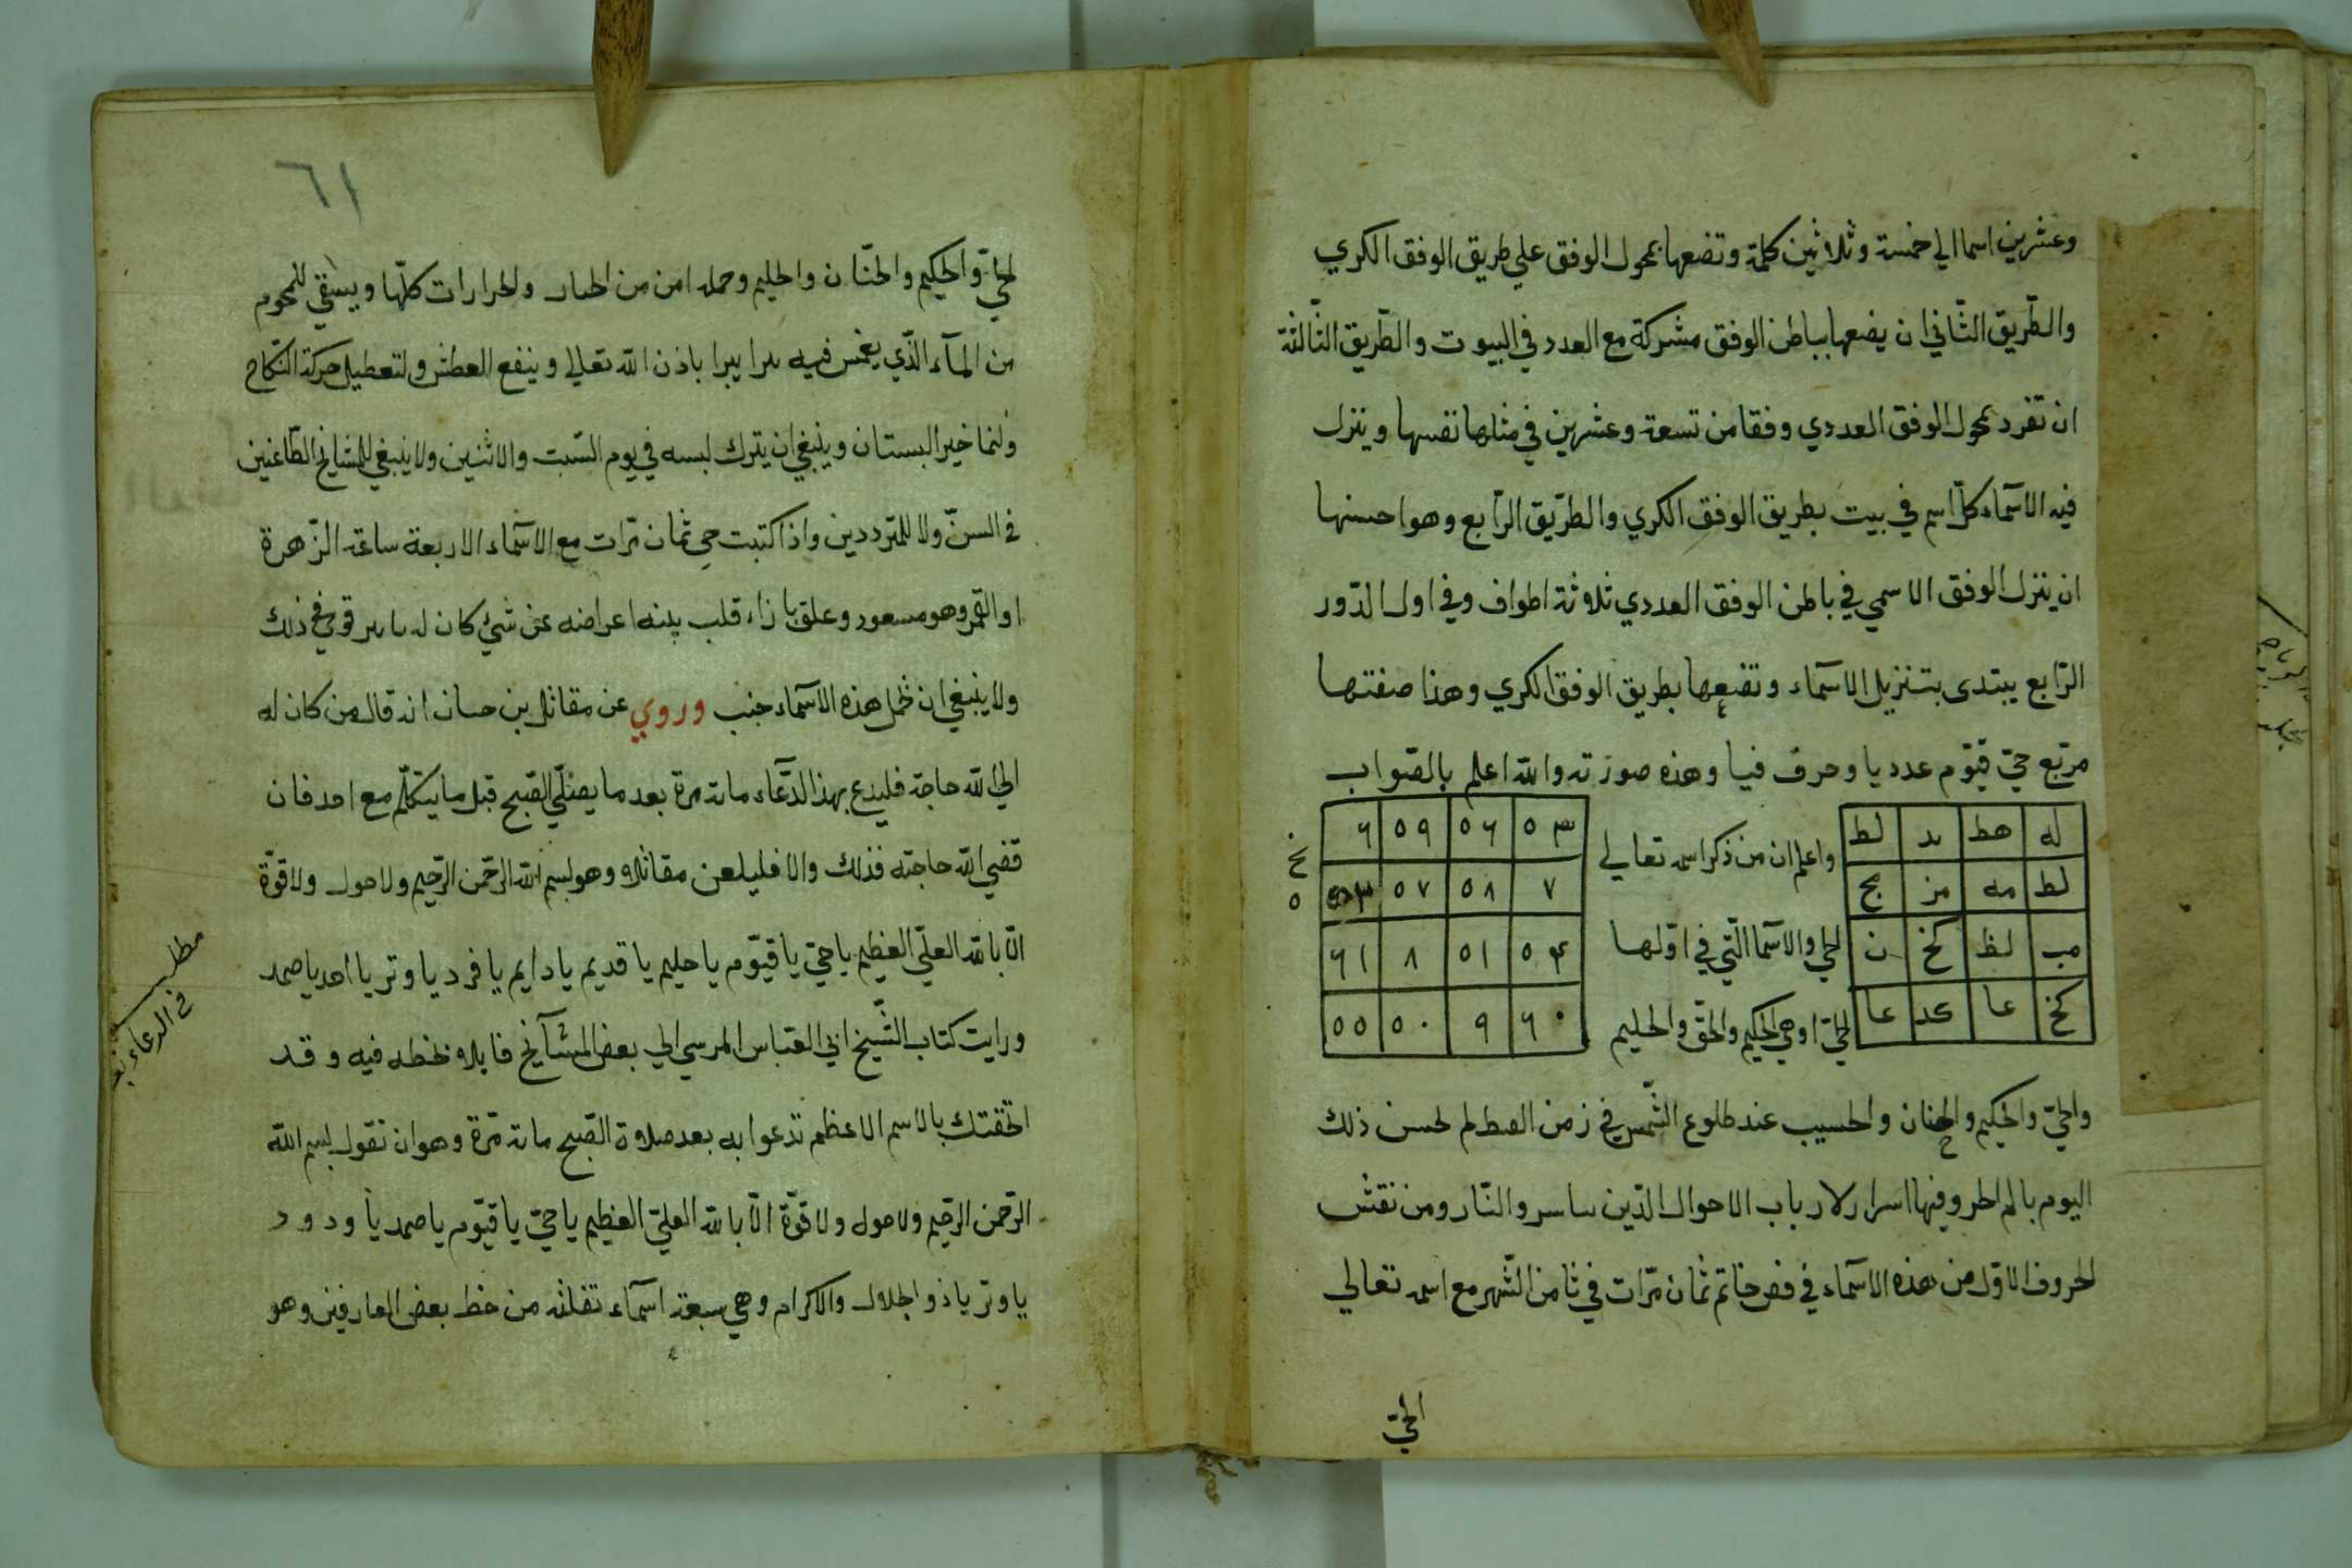 وعشرين اسما الي خمسة وثلاثين كلمة وتضعها بحول الوفق علي طريق الوفق الكري
والطّريق الثّاني ان يضعها بباطن الوفق مشركة مع العدد في البيوت والطّريق الثّالثة
ان تفرد بحول الوفق العددي وفقا من تسعة وعشرين في مثلها نفسها وينزل
فيه الاسمآء كلّ اسم في بيت بطريق الوفق الكري والطّريق الرّابع وهو احسنها
ان ينزل الوفق الاسمي في باطن الوفق العددي ثلاثة اطواف وفي اول الدّور
الرّابع يبتدي بتنزيل الاسمآء وتضعها بطريق الوفق الكري وهذا صفتها
مربّع حيّ قيّوم عدديا وحرف فيا وهذه صورته والله اعلم بالصّواب
له هط ىد لط
لط مه مز مج
مب لظ كخ ن
كخ عا عد عا
واعلم ان من ذكر اسمه تعالي
الحي والاسما الّتي في اوّلها
الحيّ وهي الحكيم والحقّ والحليم
٥٣ ٥٦ ٥٩ ٦
٧ ٥٨ ٥٧
٥٤ ٥١ ٨ ٦١
٦٠ ٩ ٥٠ ٥٥
والحيّ والحكيم والحنان والحسيب عند طلوع الشّمس في زمن لم لحسن ذلك
اليوم بالم الحر وفيها اسرار لارباب الاحوال الّذين والنّار ومن نقش
الحروف الاوّل من هذه الاسمآء في فص خاتم ثمان مرّات في ثامن الشّهر مع اسمه تعالي
الحيّ
٦١
الحيّ والحكيم والحنّان والحليم وحمله امن من والحرارات كلّها ويسقي للمحوم
من المآء الّذي يغمس فيه يبرا باذن الله تعالي وينفع للعطش ولتعطيل حركة النّكاح
ولنما خير البستان وينبغي ان يترك لبسه في يوم السّبت والاثنين ولا ينبغي للمشايخ الطّاعنين
في السنّ ولا للمتردّدين واذا كتبت حي ثمان مرّات مع الاسمآء الاربعة ساعة الزّهرة
او القمر وهو مسعود وعلق بازاء قلب اعراضه عن شئ كان له في ذلك
ولا ينبغي ان تحمل هذه الاسمآء جنب وروي عن مقاتل بن حسان انه قال من كان له
الي الله حاجة فليدع بهذا الدّعآء ماىة مرة بعد ما يصلّي الصّبح قبل ما يتكلّم مع احد فان
قضي الله حاجته فذلك والا فليلعن مقاتلا وهو بسم الله الرّحمن الرّحيم ولا حول ولا قوّة
الّا بالله العليّ العظيم يا حيّ يا قيّوم يا حليم يا قديم يا دايم يا فرد يا وتر يا احد يا صمد
ورايت كتاب الشّيخ ابي العبّاس المرسي الي بعض المشآيخ بخطه فيه وقد
اتحفتك بالاسم الاعظم تدعوا به بعد صلاة الصّبح ماىة مرّة وهو ان تقول بسم الله
الرّحمن الرّحيم ولا حول ولا قوّة الّا بالله العليّ العظيم يا حيّ يا قيّوم يا صمد يا ودود
يا وتر يا ذو الجلال والاكرام وهي سبعة اسمآء نقلته من خط بعض العارفين وهو
مطلب
في الدعاء